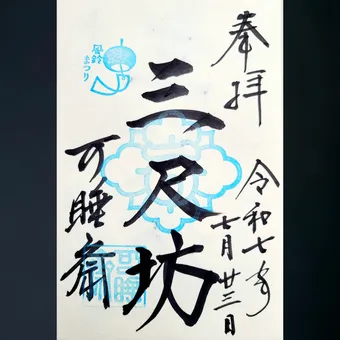 奉拝
令和七年
七月廿三日
三尺坊
可睡斎
風鈴
まつり